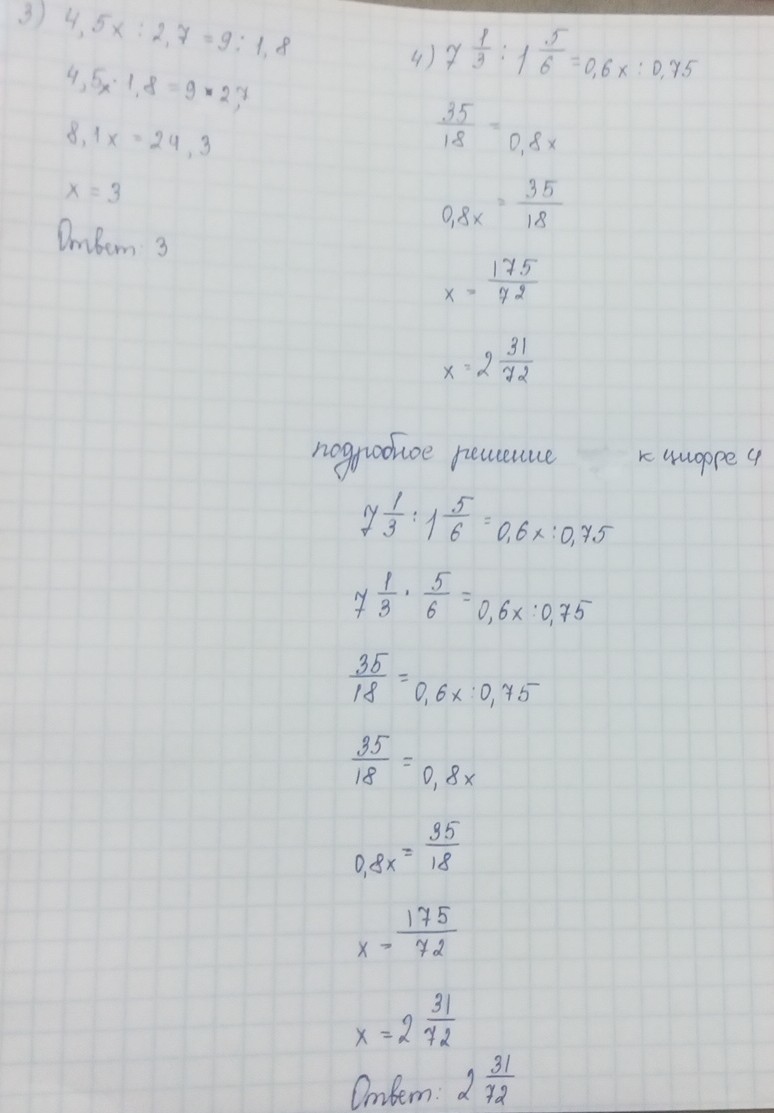 3) 4,5x : 2,7 = 9 : 1,8
4,5x · 1,8 = 9 · 2,7
8,1x = 24,3
x = 3
Ответ: 3
4) 7 1/3 : 1 5/6 = 0,6x : 0,75
35/18 = 0,8x
0,8x = 35/18
x = 175/72
x = 2 31/72
подробное решение к цифре 4
7 1/3 : 1 5/6 = 0,6x : 0,75
7 1/3 · 5/6 = 0,6x : 0,75
35/18 = 0,6x : 0,75
35/18 = 0,8x
0,8x = 35/18
x = 175/72
x = 2 31/72
Ответ: 2 31/72